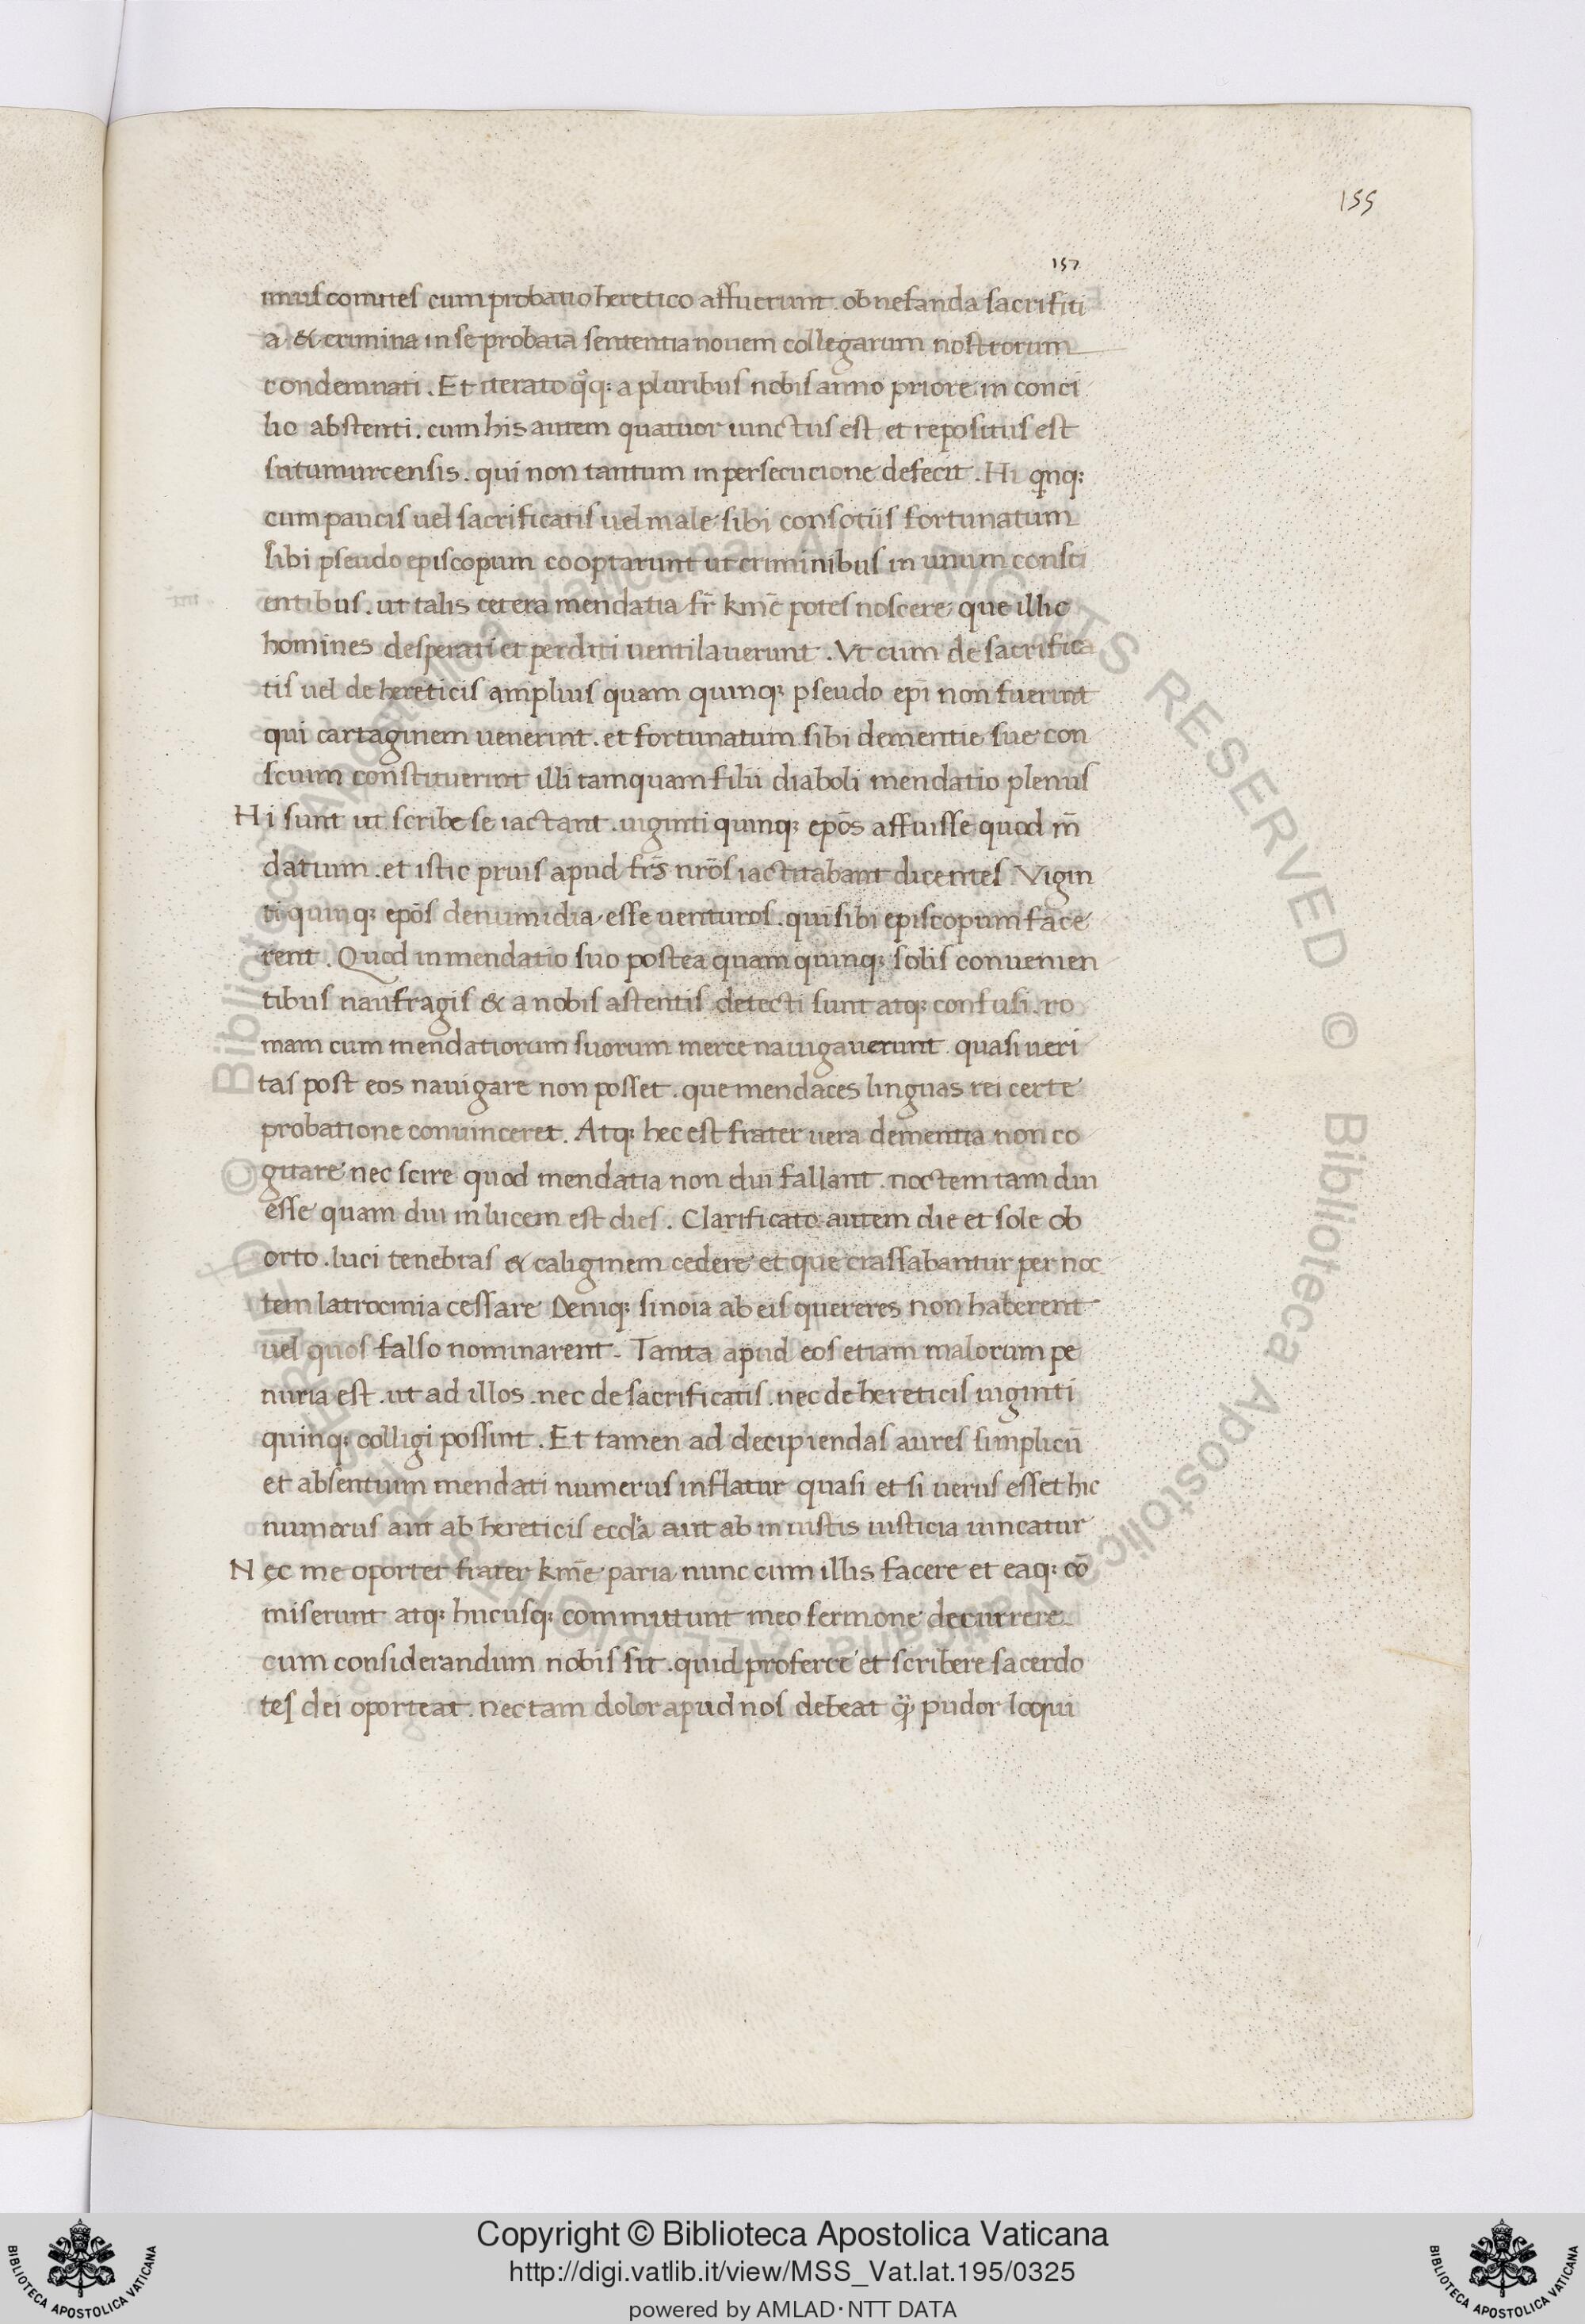 155
157
mus comites cum probatio heretico affuerunt. ob nefanda sacrifiti
a & crimina in se probata sententia nouem collegarum nostrorum
condemnati. Et iterato qͦq; a pluribus nobis anno priore in conci
lio abstenti. cum his autem quatuor iunctus est et repositus est
sutumurcensis. qui non tantum in persecucione defecit. Hi qnq;
cum paucis uel sacrificatis uel male sibi consotiis fortunatum
sibi pseudo episcopum cooptarunt ut criminibus in unum consci
entibus. ut talis cetera mendatia fr̄ km̄e potes noscere que illic
homines desperati et perditi uentilauerunt. Vt cum de sacrifica
tis uel de hereticis amplius quam quinq; pseudo epi non fuerint
qui cartaginem uenerint. et fortunatum sibi dementie sue con
scium constituerint illi tamquam filii diaboli mendatio plenus
Hi sunt ut scribe se iactant. uiginti quinq; epōs affuisse quod m̄
datium. et istic prius apud frs̄ nrōs iactitabant dicentes. Vigin
ti quinq; epōs denumidia esse uenturos. qui sibi episcopum face
rent. Quod in mendatio suo postea quam quinq; solis conuenien
tibus naufragis & a nobis astentis detecti sunt atq; confusi. ro
mam cum mendatiorum suorum merce nauigauerunt. quasi ueri
tas post eos nauigare non posset. que mendaces linguas rei certe
probatione conuinceret. Atq; hec est frater uera dementia non co
gitare nec scire quod mendatia non diu fallant. noctem tam diu
esse quam diu inlucem est dies. Clarificato autem die et sole ob
orto. luci tenebras & caliginem cedere et que crassabantur per noc
tem latrocinia cessare Deniq; si noīa ab eis quereres non haberent
uel quos falso nominarent. Tanta apud eos etiam malorum pe
nuria est. ut ad illos. nec de sacrificatis. nec de hereticis uiginti
quinq; colligi possint. Et tamen ad decipiendas aures simpliciū
et absentium mendati numerus inflatur quasi et si uerus esset hic
numerus aut ab hereticis eccl̄a aut ab iniustis iusticia uincatur
Nec me oportet frater km̄e paria nunc cum illis facere et eaq; cō
miserunt atq; hucusq; committunt meo sermone decurrere
cum considerandum nobis sit. quid proferre et scribere sacerdo
tes dei oporteat. nec tam dolor apud nos debeat pudor loqui
Copyright © Biblioteca Apostolica Vaticana
http://digi.vatlib.it/view/MSS_Vat.lat.195/0325
powered by AMLAD·NTT DATA